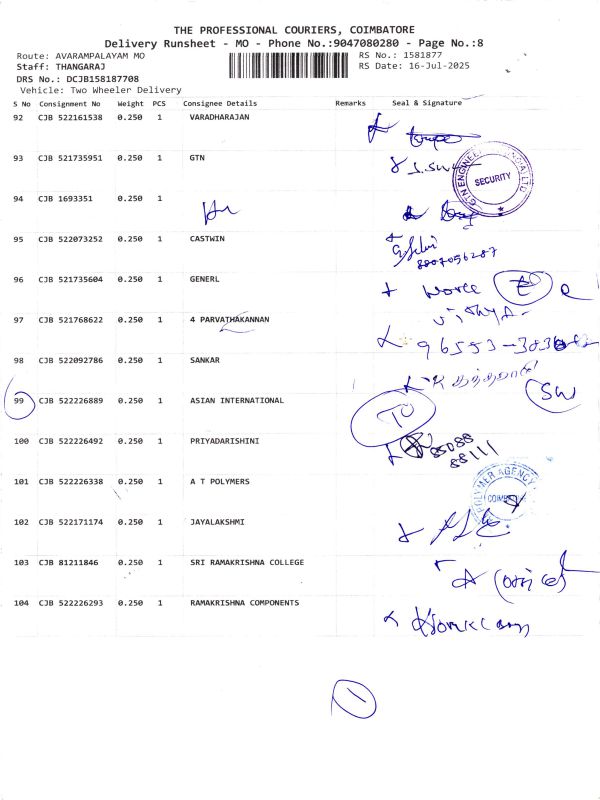 THE PROFESSIONAL COURIERS, COIMBATORE
Delivery Runsheet - MO - Phone No.:9047080280 - Page No.:8
Route: AVARAMPALAYAM MO RS No.: 1581877
Staff: THANGARAJ RS Date: 16-Jul-2025
DRS No.: DCJB158187708
Vehicle: Two Wheeler Delivery
S No Consignment No Weight PCS Consignee Details Remarks Seal & Signature
92 CJB 522161538 0.250 1 VARADHARAJAN
93 CJB 521735951 0.250 1 GTN
SECURITY
94 CJB 1693351 0.250 1
95 CJB 522073252 0.250 1 CASTWIN
8807056287
96 CJB 521735604 0.250 1 GENERL
97 CJB 521768622 0.250 1 4 PARVATHAKANNAN
98 CJB 522092786 0.250 1 SANKAR
SW
99 CJB 522226889 0.250 1 ASIAN INTERNATIONAL
100 CJB 522226492 0.250 1 PRIYADARISHINI
85088
88111
101 CJB 522226338 0.250 1 A T POLYMERS
POLYMER AGENCY
102 CJB 522171174 0.250 1 JAYALAKSHMI
103 CJB 81211846 0.250 1 SRI RAMAKRISHNA COLLEGE
104 CJB 522226293 0.250 1 RAMAKRISHNA COMPONENTS
1